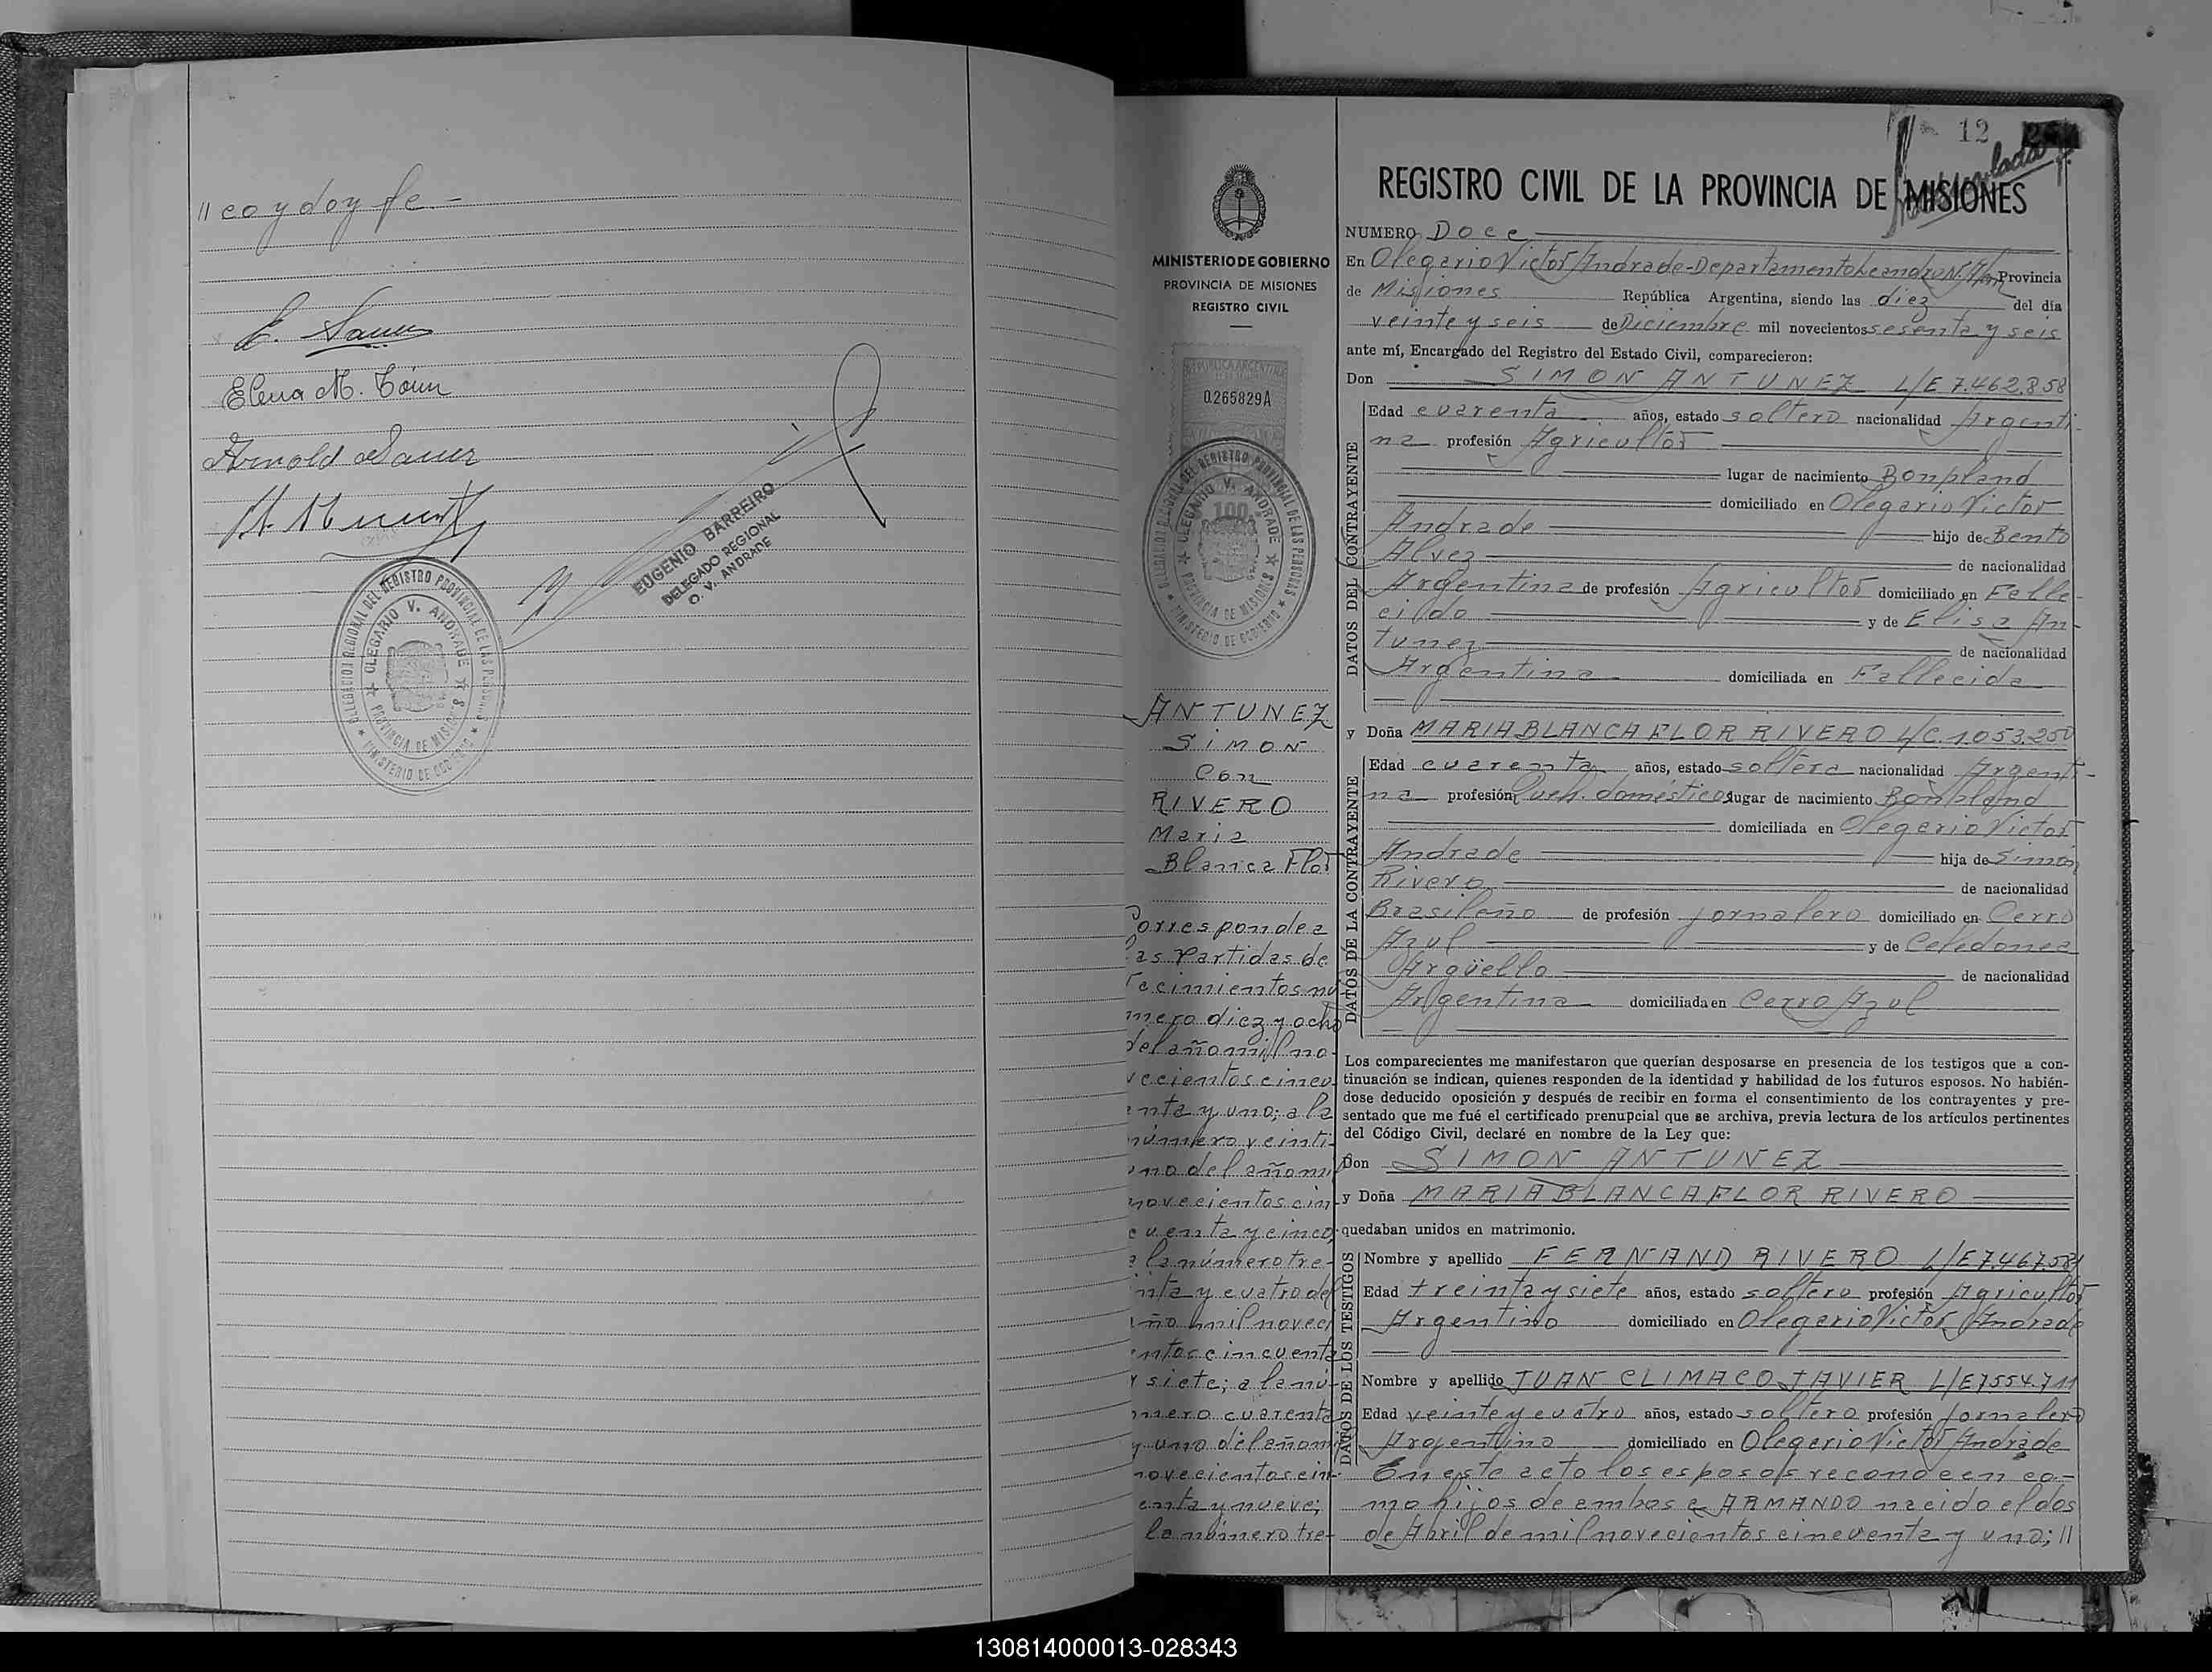 // co y doy fe.-
E. Sauer
Elena M.
Arnold Sauer
EUGENIO BARREIRO
DELEGADO REGIONAL
O. V. ANDRADE
DELEGACION REGIONAL DEL REGISTRO PROVINCIAL DE LAS PERSONAS
OLEGARIO V. ANDRADE
PROVINCIA DE MISIONES
MINISTERIO DE GOBIERNO
MINISTERIO DE GOBIERNO
PROVINCIA DE MISIONES
REGISTRO CIVIL
REPUBLICA ARGENTINA
0.265829A
DELEGACION REGIONAL DEL REGISTRO PROVINCIAL DE LAS PERSONAS
OLEGARIO V. ANDRADE
100
PROVINCIA DE MISIONES
MINISTERIO DE GOBIERNO
ANTUNEZ
SIMON
Con
RIVERO
Maria
Blanca Flor
Corresponde a
las Partidas de
nú
mero diez y ocho
del año mil no-
vecientos cincu
enta y uno; a la
número veinti-
uno del año mil
novecientos cin
cuenta y cinco,
a la número tre-
inta y cuatro del
año mil noveci
entos cincuenta
y siete; a la nú-
mero cuarenta
y uno del año mil
novecientos cin-
cuenta y nueve;
la número tre-
12
REGISTRO CIVIL DE LA PROVINCIA DE MISIONES
NUMERO Doce
En Olegario Victor Andrade-Departamento Leandro N. Alem Provincia
de Misiones República Argentina, siendo las diez del día
veinte y seis de Diciembre mil novecientos sesenta y seis
ante mí, Encargado del Registro del Estado Civil, comparecieron:
Don SIMON ANTUNEZ L/E 7.462.858
DATOS DEL CONTRAYENTE
Edad cuarenta años, estado soltero nacionalidad Argenti-
na profesión Agricultor
lugar de nacimiento Bonpland
domiciliado en Olegario Victor
Andrade hijo de Bento
Alvez de nacionalidad
Argentina de profesión Agricultor domiciliado en Falle-
cido y de Elisa An-
tunez de nacionalidad
Argentina domiciliada en Fallecida
y Doña MARIA BLANCA FLOR RIVERO L/C.1.053.250
DATOS DE LA CONTRAYENTE
Edad cuarenta años, estado soltera nacionalidad Argenti-
na profesión Queh. domésticos lugar de nacimiento Bonpland
domiciliada en Olegario Victor
Andrade hija de Simón
Rivero de nacionalidad
Brasileño de profesión jornalero domiciliado en Cerro
Azul y de Celedonea
Argüello de nacionalidad
Argentina domiciliada en Cerro Azul
Los comparecientes me manifestaron que querían desposarse en presencia de los testigos que a con-
tinuación se indican, quienes responden de la identidad y habilidad de los futuros esposos. No habién-
dose deducido oposición y después de recibir en forma el consentimiento de los contrayentes y pre-
sentado que me fué el certificado prenupcial que se archiva, previa lectura de los artículos pertinentes
del Código Civil, declaré en nombre de la Ley que:
Don SIMON ANTUNEZ
y Doña MARIA BLANCA FLOR RIVERO
quedaban unidos en matrimonio.
DATOS DE LOS TESTIGOS
Nombre y apellido FERNAND RIVERO L/E 7.467.581
Edad treinta y siete años, estado soltero profesión Agricultor
Argentino domiciliado en Olegario Victor Andrade
Nombre y apellido JUAN CLIMACO JAVIER L/E 7554.711
Edad veinte y cuatro años, estado soltero profesión Jornalero
Argentino domiciliado en Olegario Victor Andrade
En este acto los esposos reconocen co-
mo hijos de ambos a ARMANDO nacido el dos
de Abril de mil novecientos cincuenta y uno; //
130814000013-028343